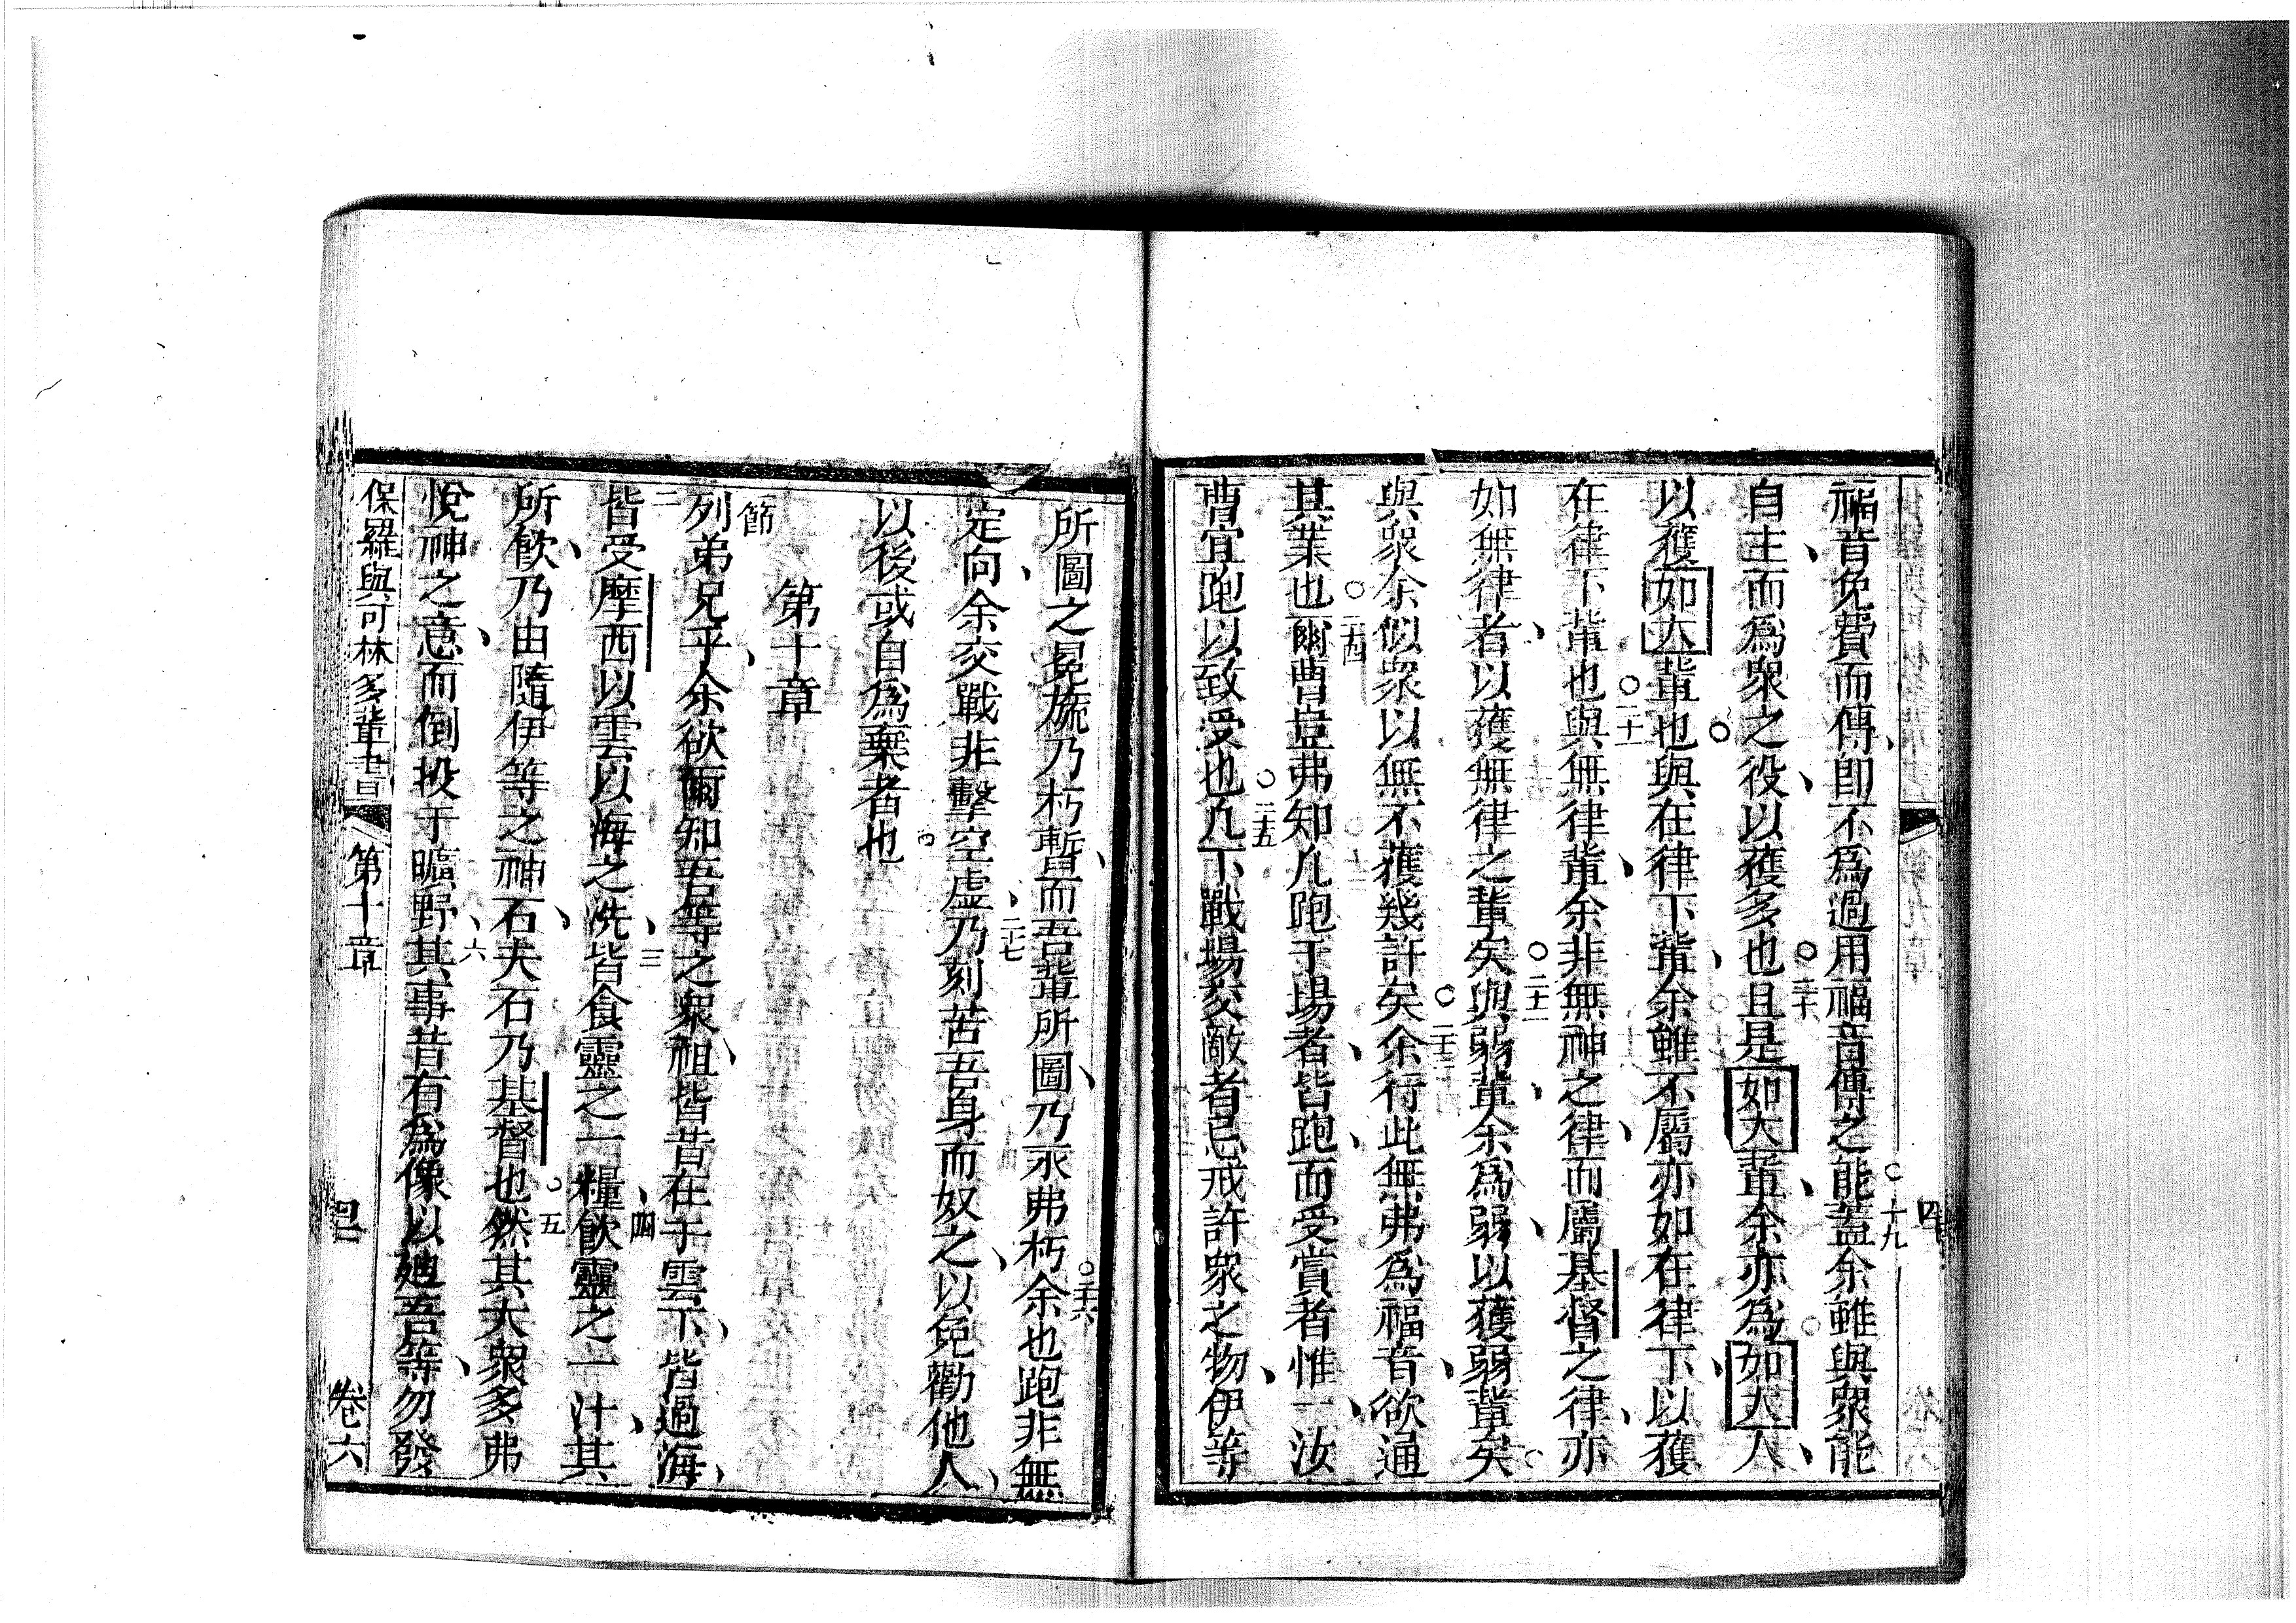 福音免費而傳、卽不爲過用福音傳之能蓋余雖與衆能
自主、而爲衆之役、以獲多也○二十且是如大輩、余亦爲如大人、
以獲如大輩也○與在律下輩、余雖不屬亦如在律下、以獲
在律下輩也○二十一與無律輩、余非無神之律、而屬基督之律、亦
如無律者、以獲無律之輩矣○二十二與弱輩、余爲弱、以獲弱輩矣○
與衆余似衆以無不獲幾許矣○二十三余行此無弗爲福音、欲通
其業也○二四爾曹豈弗知凡跑于場者、皆跑、而受賞者惟一、汝
曹宜跑以致受也○二五凡下戰場交敵者、己戒許衆之物、伊等
所圖之冕旒乃朽暫、而吾輩所圖、乃永弗朽○二六余也跑非無
定向、余交戰非擊空虛、二七乃刻苦吾身而奴之、以免勸他人、
以後或自爲棄者也
第十章
節
列弟兄乎、余欲爾知吾等之衆祖、皆昔在于雲下、皆過海、
二皆受摩西以雲以海之洗、三皆食靈之一糧、四飮靈之一汁、其
所飮、乃由隨伊等之神石、夫石乃基督也○五然其大衆多弗
悅神之意、而倒投于曠野、六其事昔有爲像以迪吾等、勿發
保羅與可林多輩書 第十章 四 卷六